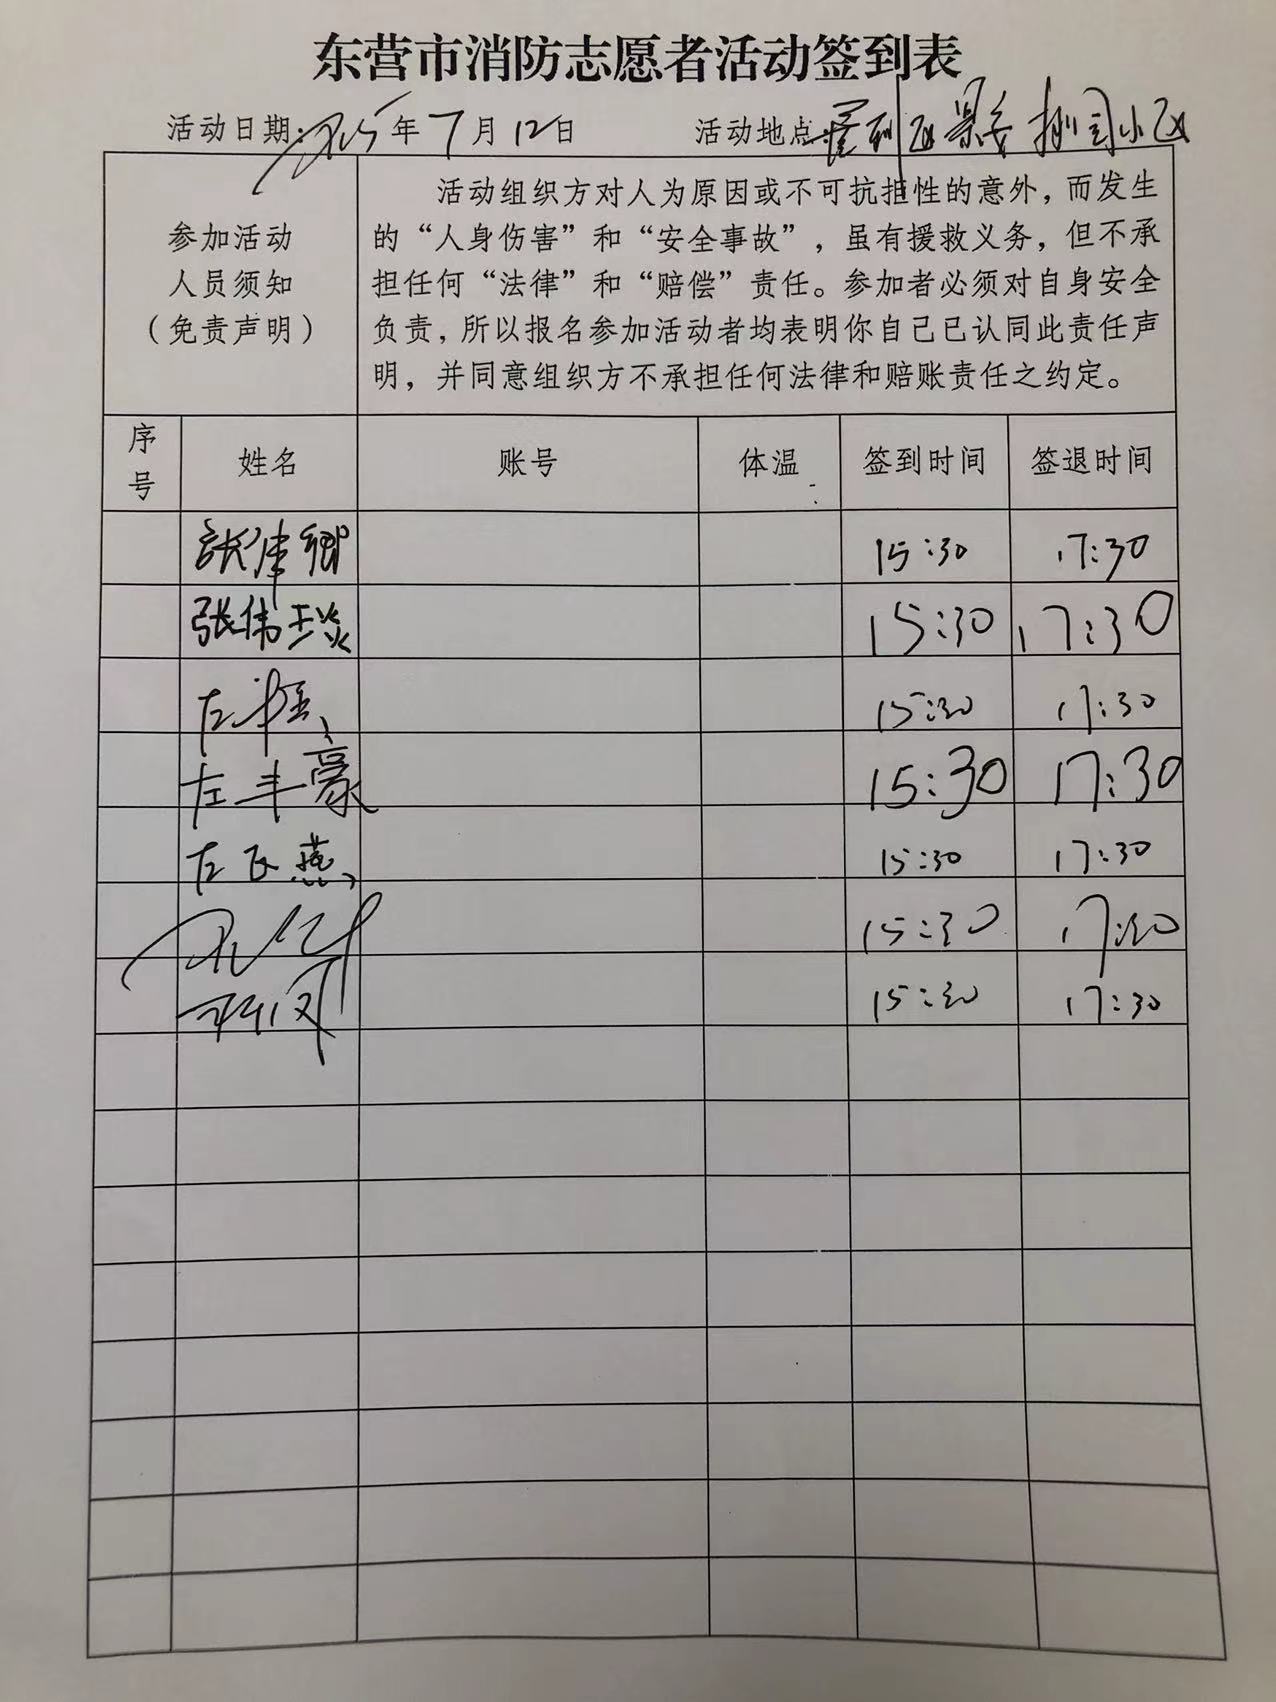 东营市消防志愿者活动签到表
活动日期: 2025年7月12日 活动地点: 垦利区 小区
参加活动
人员须知
（免责声明）
活动组织方对人为原因或不可抗拒性的意外，而发生
的“人身伤害”和“安全事故”，虽有援救义务，但不承
担任何“法律”和“赔偿”责任。参加者必须对自身安全
负责，所以报名参加活动者均表明你自己已认同此责任声
明，并同意组织方不承担任何法律和赔账责任之约定。
序号 姓名 账号 体温 签到时间 签退时间
张津卿 15:30 17:30
张伟琰 15:30 17:30
左 15:30 17:30
左丰豪 15:30 17:30
左飞燕 15:30 17:30
15:30 17:30
15:30 17:30